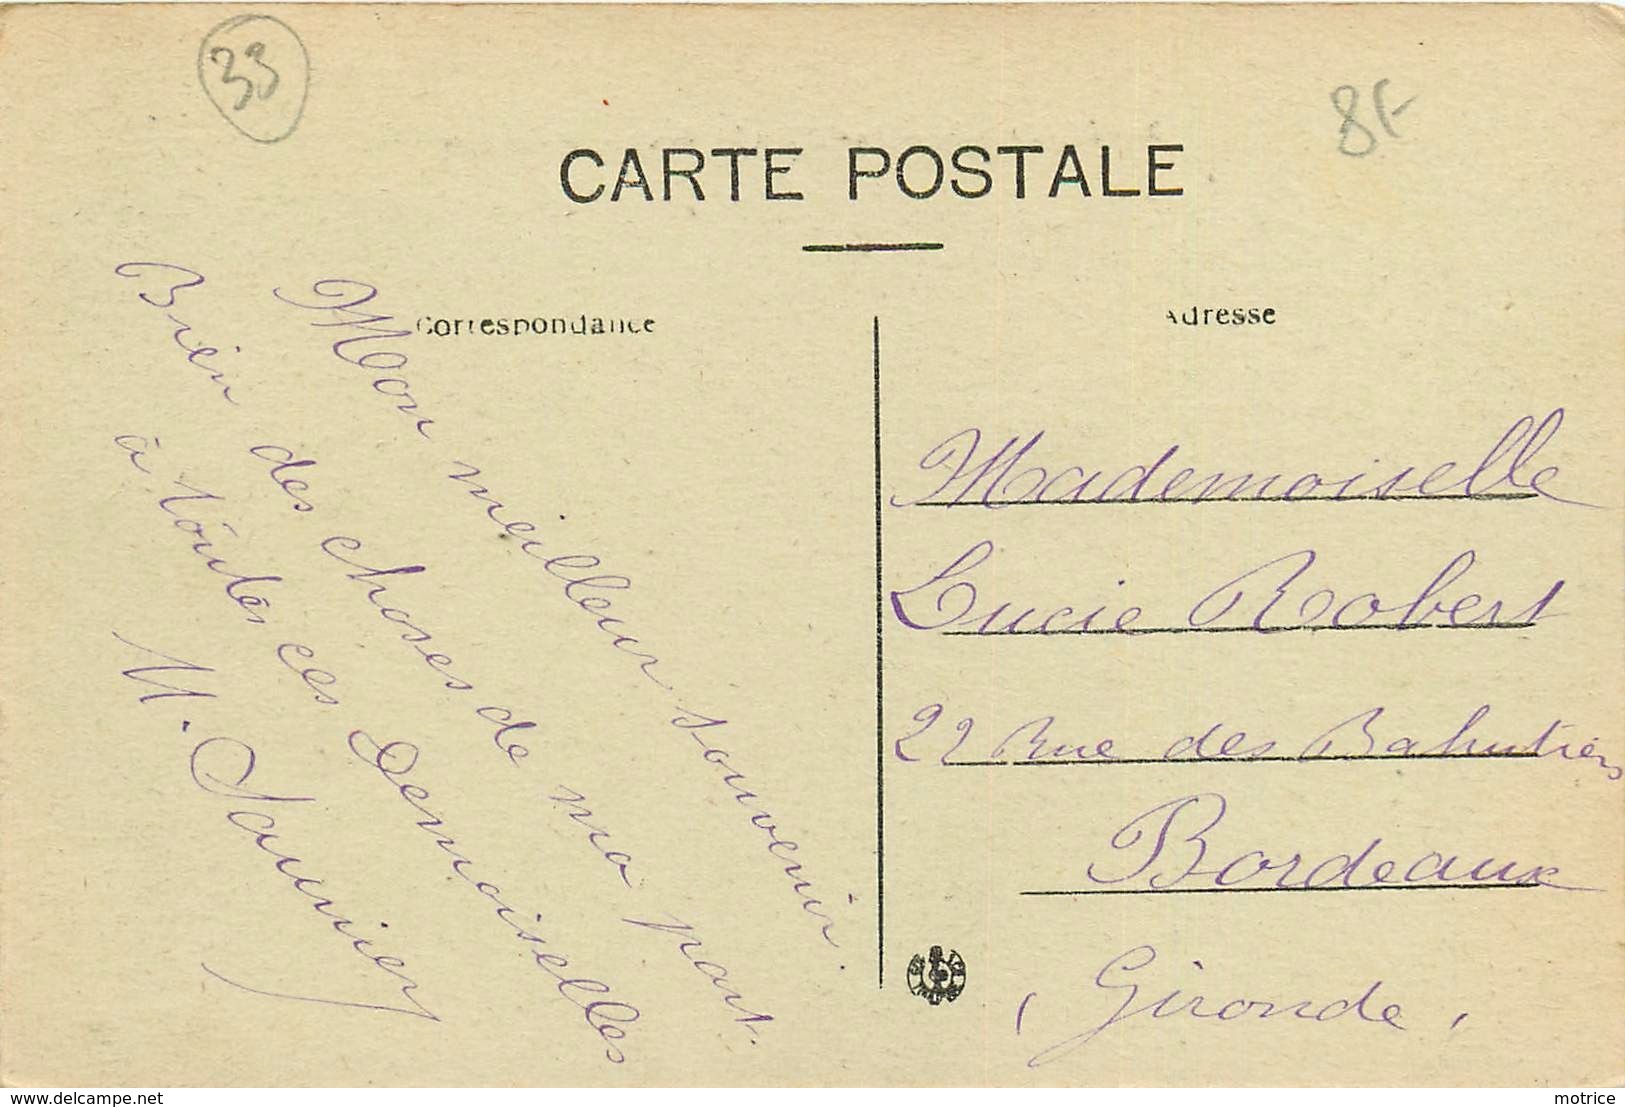 33
8F
CARTE POSTALE
Correspondance
Adresse
Mon meilleur souvenir.
Bien des choses de ma part.
à toutes ces Demoiselles
M. Saunier
Mademoiselle
Lucie Robert
22 Rue des Bahutiers
Bordeaux
(Gironde)
delcampe.net
motrice